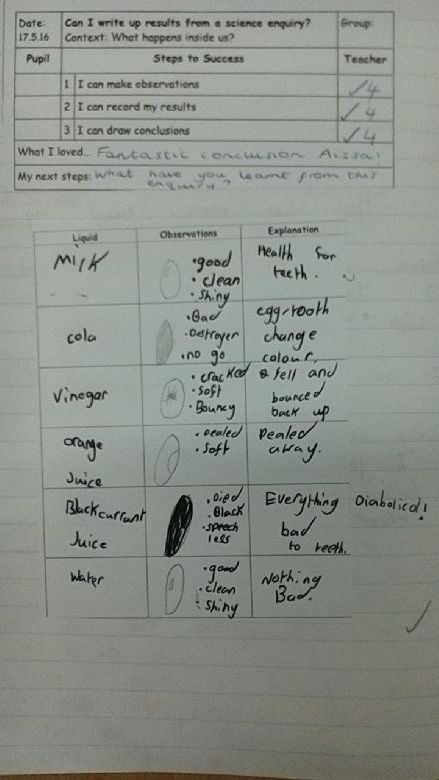 Date: Can I write up results from a science enquiry? Group:
17.5.16 Context: What happens inside us?
Pupil Steps to Success Teacher
1 I can make observations ✓4
2 I can record my results ✓4
3 I can draw conclusions ✓4
What I loved... Fantastic conclusion Aissa!
My next steps: What have you learnt from this
enquiry?
Liquid Observations Explanation
Milk
•good
•clean
•shiny
Health for
teeth.
cola
•Bad
•Destroyer
•no go
egg/tooth
change
colour.
Vinegar
•cracked
•soft
•Bouncy
& fell and
bounced
back up
orange
Juice
•Pealed
•soft
Pealed
away.
Blackcurrant
Juice
•Died
•Black
•speech
less
Everything Diabolical!
bad
to teeth.
Water
•good
•clean
•shiny
Nothing
Bad.